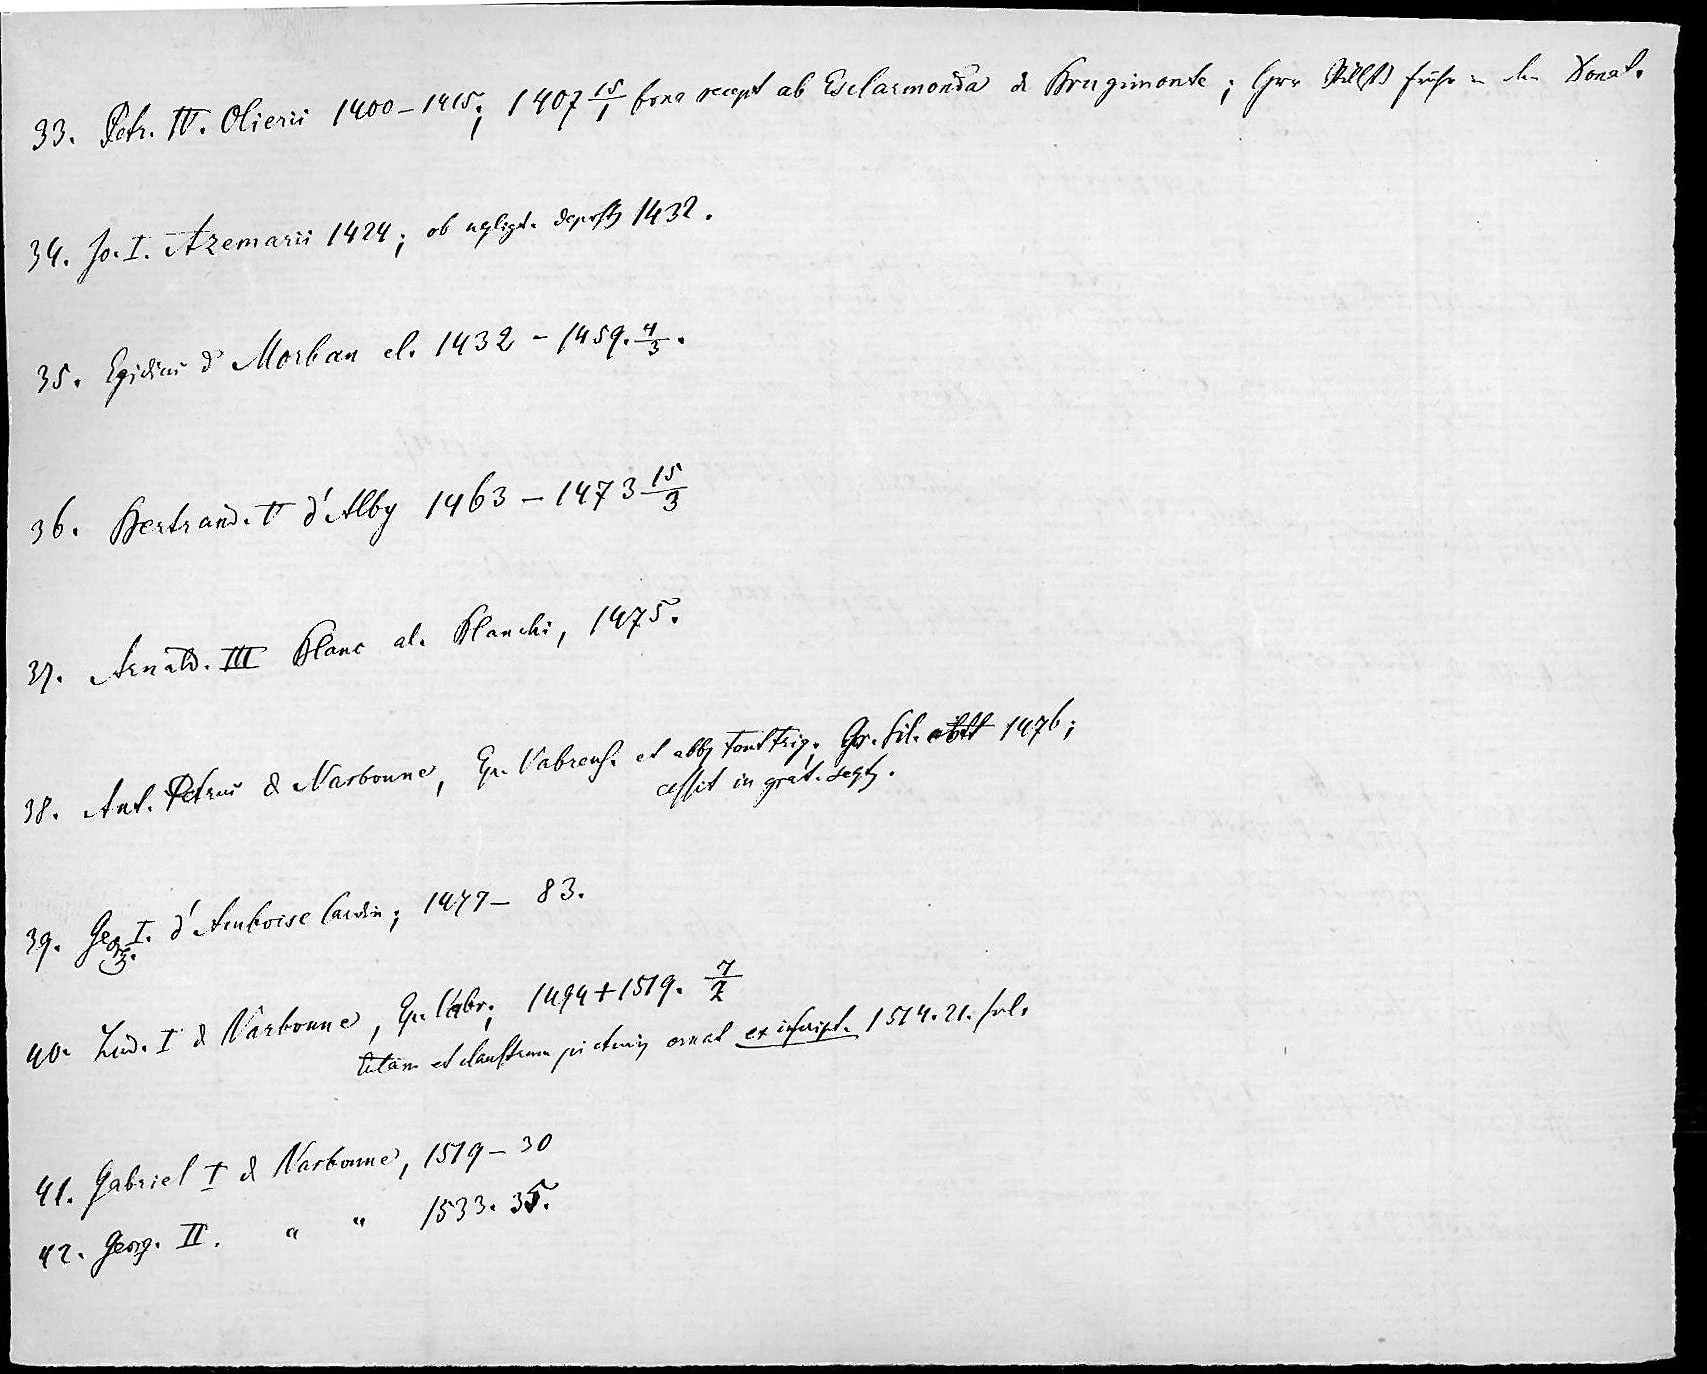 33. Petr. IV. Olierii 1400 – 1415; 1407 15/1 bona recept ab Esclarmonda d Brugimonte; früher in den Donat.
34. Jo. I. Azemarii 1424; ob negligt. 1432.
35. Egidius d Morban el. 1432 – 1459. 4/3.
36. Bertrand. V d'Alby 1463 – 1473 15/3
37. Arnald. III Blanc al. Blanchi, 1475.
38. Ant. Petrus d Narbonne, Ep. Vabrens. et abb 1476;
cessit in grat. seqtz.
39. Georg. I. d'Amboise Cardin; 1477 – 83.
40. Lud. I d Narbonne, Ep. Vabr; 1494 + 1519. 7/2
et claustrum picturis ornat ex inscript. 1514. 21.
41. Gabriel I d Narbonne, 1519 – 30
42. Georg. II. " " 1533. 35.